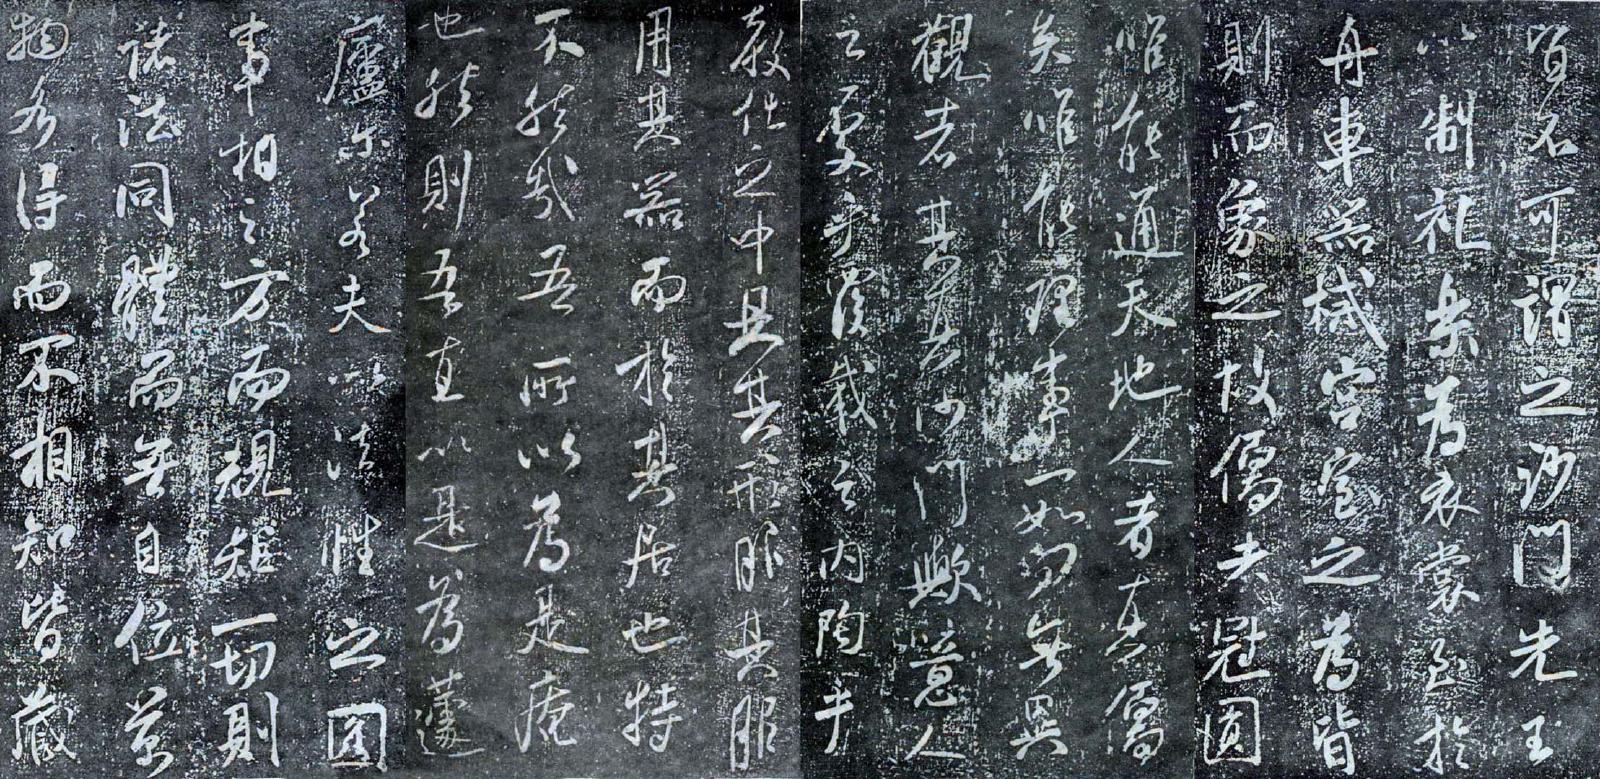 皆不可謂之沙門先王
以制礼樂為衣裳至於
舟車器械宮室之為皆
則而象之故儒者冠圓
唯能通天地人者真儒
矣唯能理事一如向無異
觀者其真沙門歟意人
之處乎覆載之内陶乎
教化之中具其形服其服
用其器而於其居也特
不然哉吾所以為是庵
也然則吾直以是為蘧
廬爾若夫以法性之圓
事相之方而規矩一切則
諸法同體而無自位萬
物各得而不相知皆藏